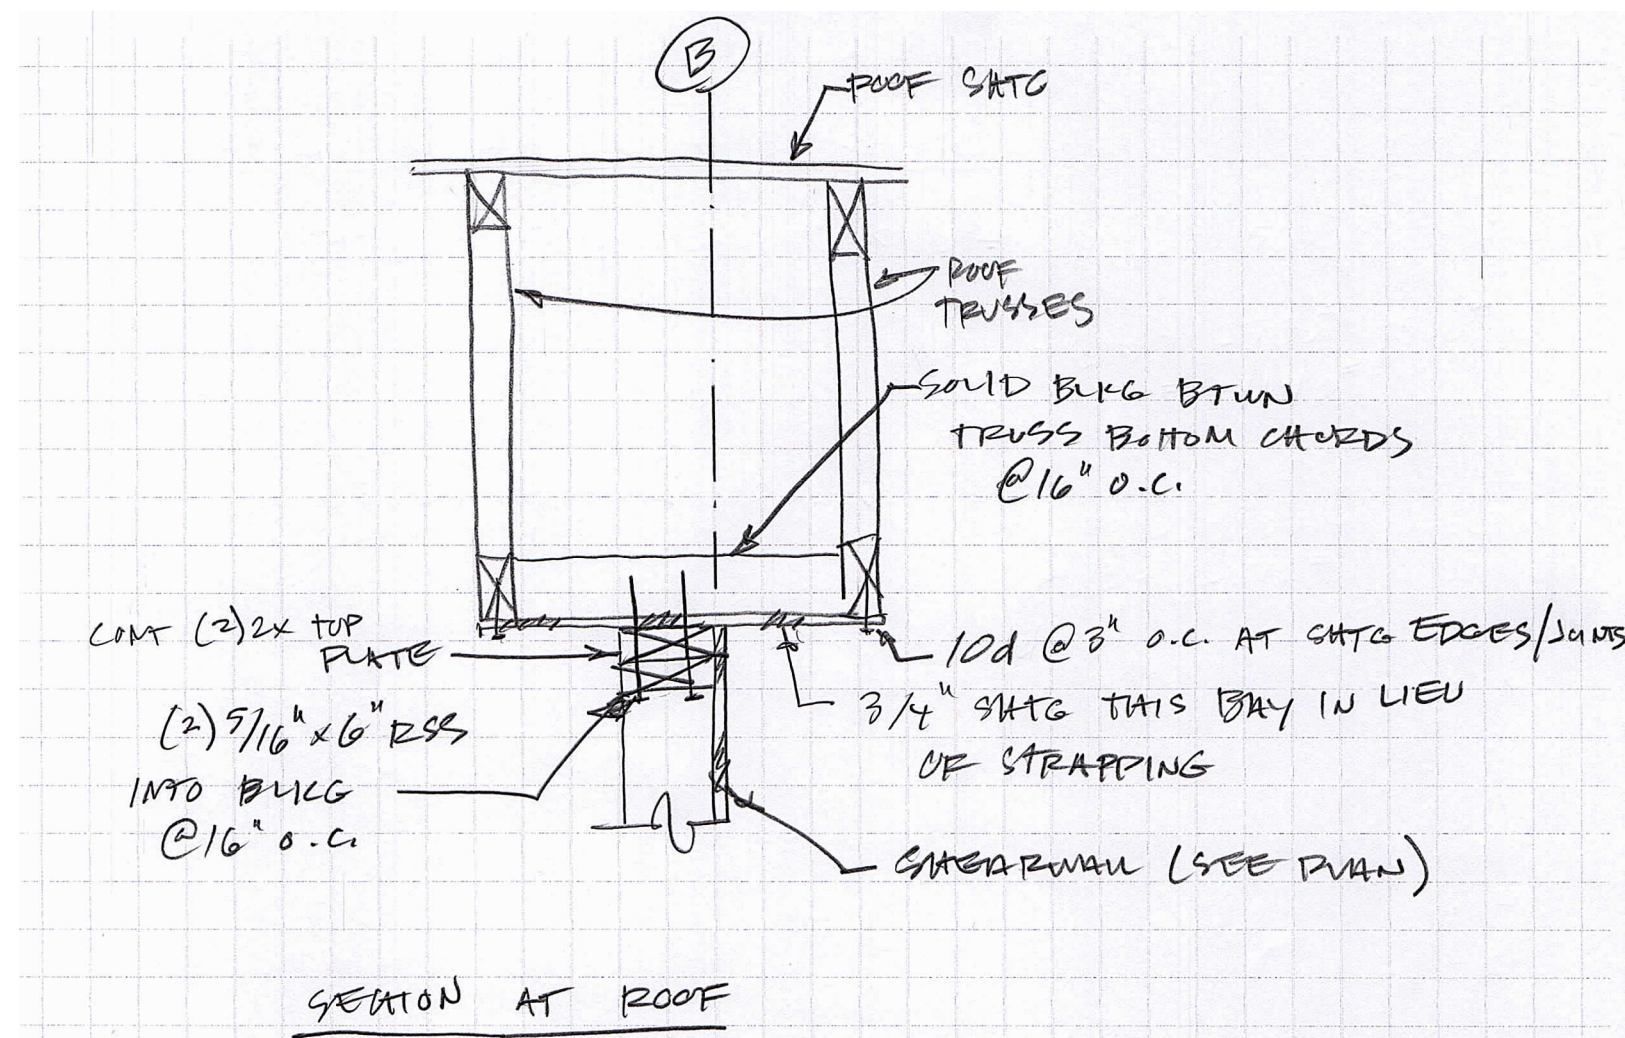 B
ROOF SHTG
ROOF
TRUSSES
SOLID BLKG BTWN
TRUSS BOTTOM CHORDS
@16" O.C.
CONT (2)2x TOP
PLATE
10d @3" O.C. AT SHTG EDGES/JOINTS
3/4" SHTG THIS BAY IN LIEU
OF STRAPPING
(2) 5/16" x 6" RSS
INTO BLKG
@16" O.C.
SHEARWALL (SEE PLAN)
SECTION AT ROOF